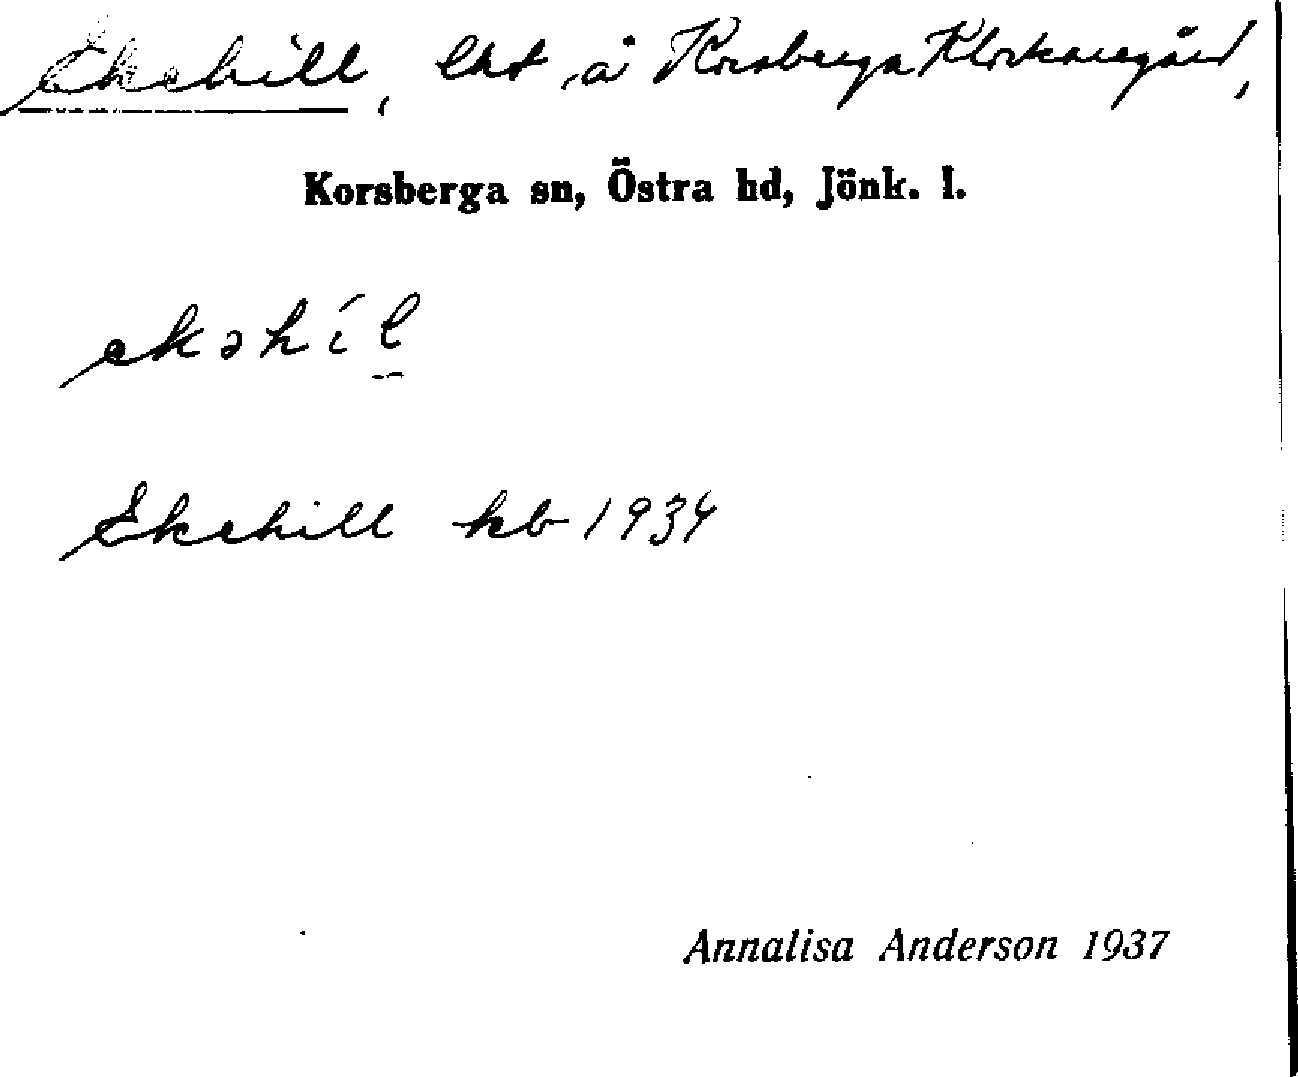 Ekehill, lht å Korsberga Klockaregård,
Korsberga sn, Östra hd, Jönk. l.
ekəhíl
Ekehill kb 1934
Annalisa Anderson 1937